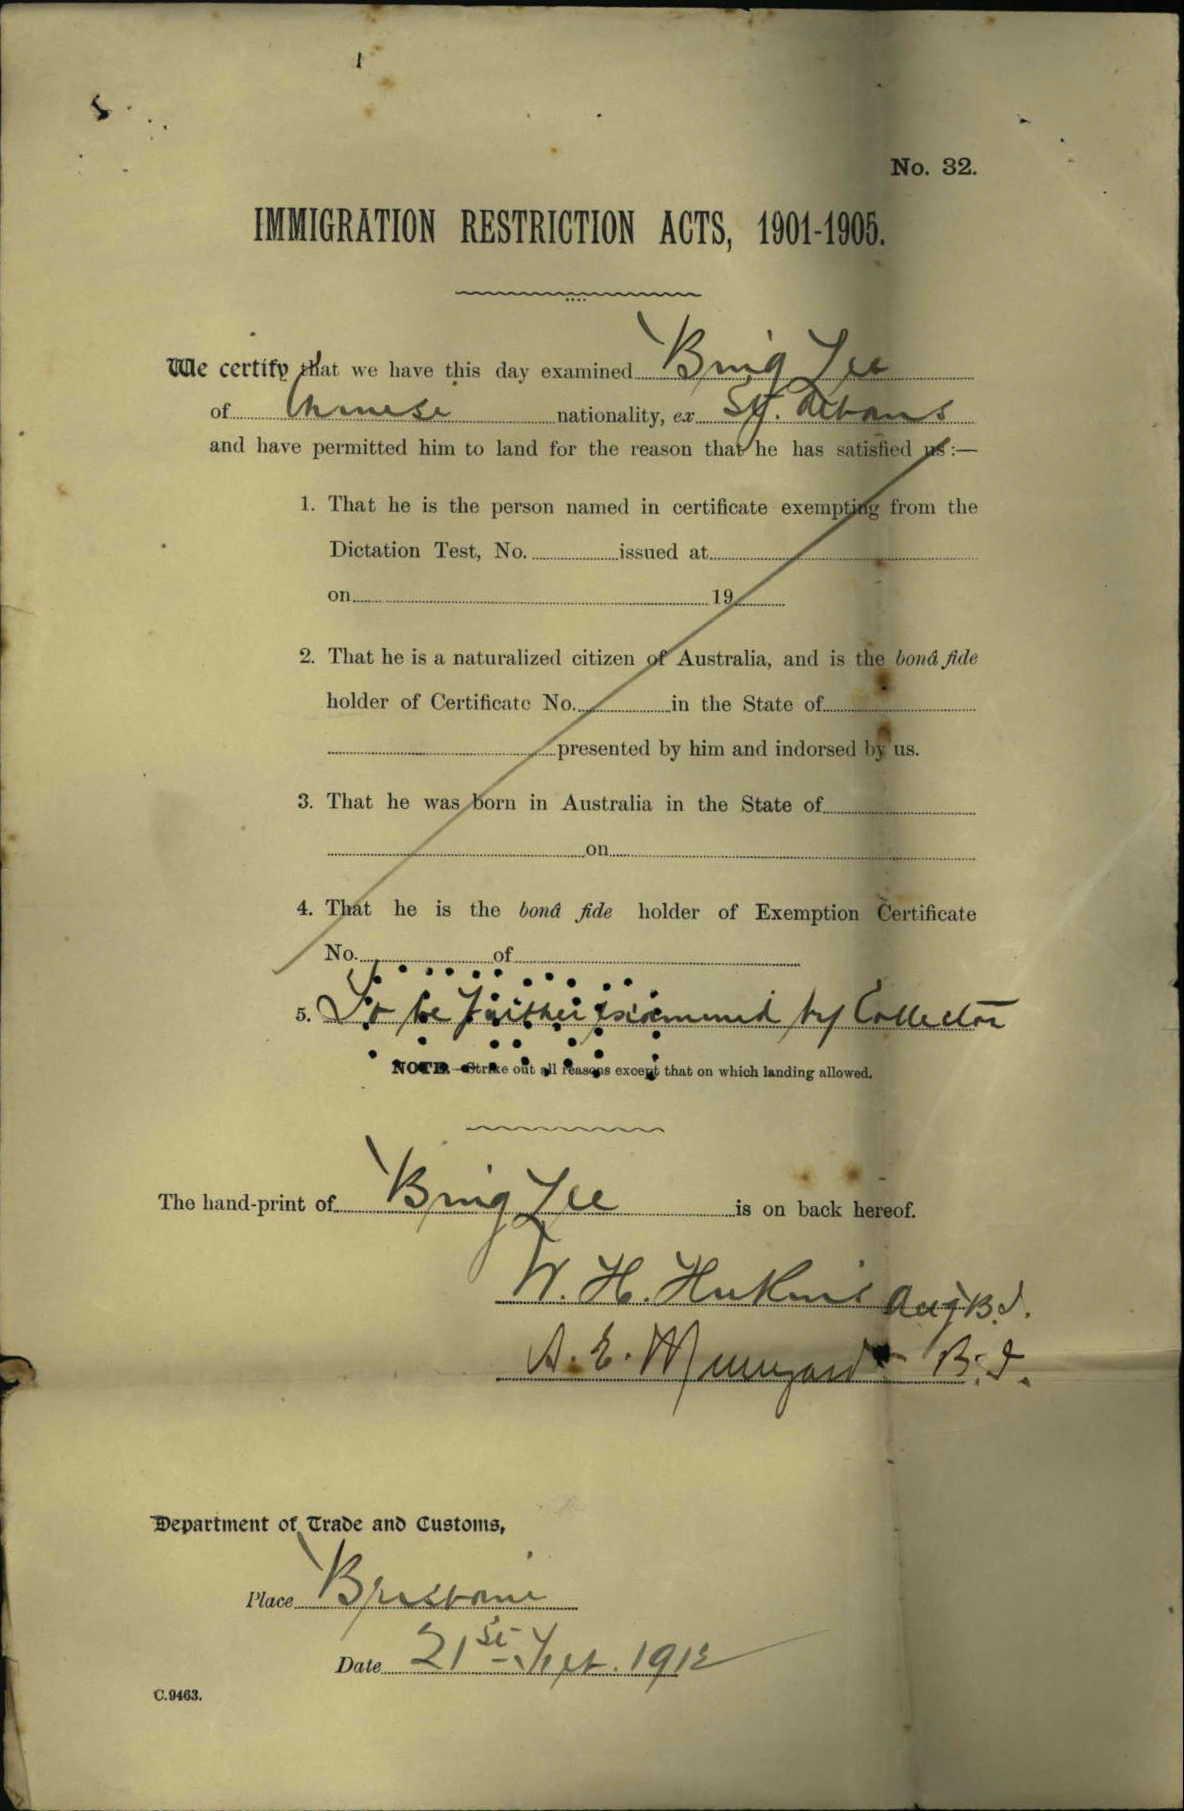 No. 32.
IMMIGRATION RESTRICTION ACTS, 1901-1905.
We certify that we have this day examined Bing Lee
of Chinese nationality, ex St. Albans
and have permitted him to land for the reason that he has satisfied us:—
1. That he is the person named in certificate exempting from the
Dictation Test, No. issued at
on 19
2. That he is a naturalized citizen of Australia, and is the bonâ fide
holder of Certificate No. in the State of
presented by him and indorsed by us.
3. That he was born in Australia in the State of
on
4. That he is the bonâ fide holder of Exemption Certificate
No. of
5. To be further examined by Collector
NOTE.—Strike out all reasons except that on which landing allowed.
The hand-print of Bing Lee is on back hereof.
W. H. B.I.
A. E. B.I.
Department of Trade and Customs,
Place Brisbane
Date 21st Sept. 1912
C.9463.